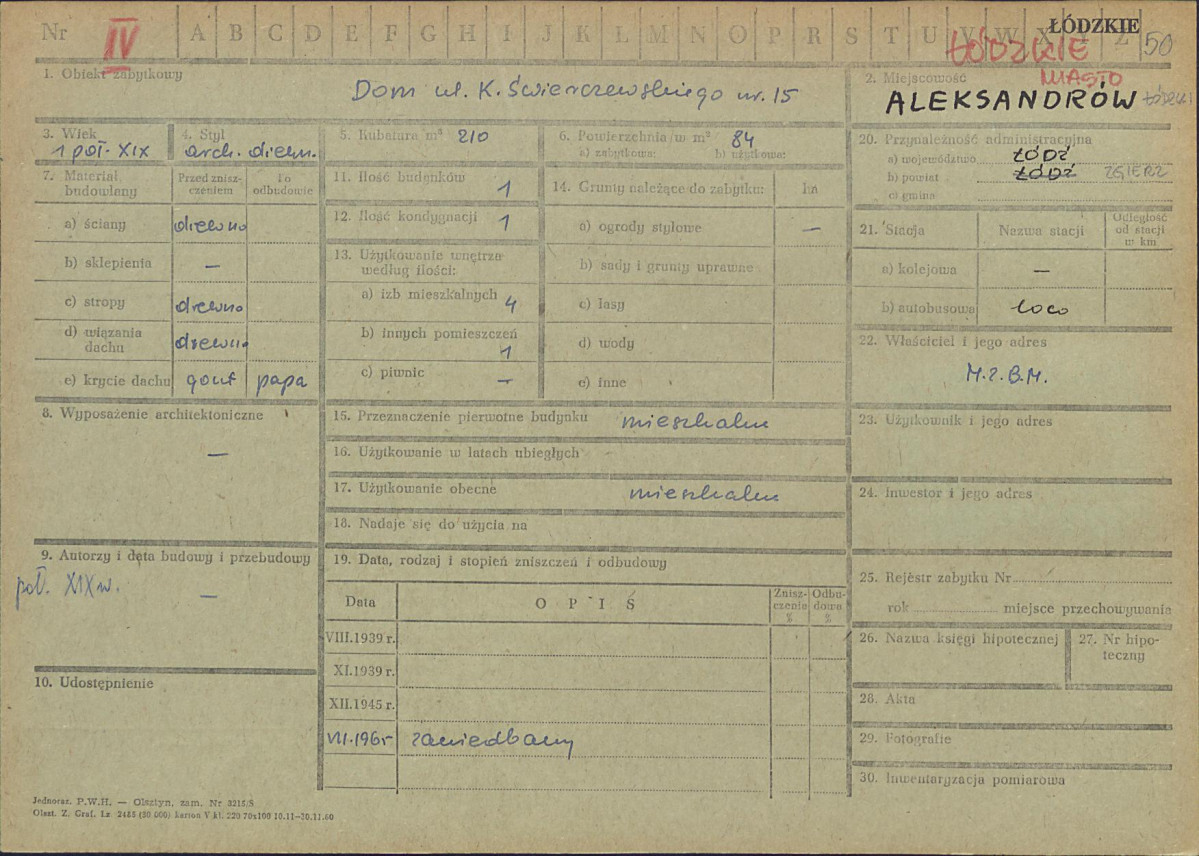 Nr IV A B C D E F G H I J K L M N O P R S T U V W X Y Z 50
ŁÓDZKIE
ŁÓDZKIE
MIASTO
1. Obiekt zabytkowy
Dom ul. K. Świerczewskiego nr. 15
2. Miejscowość
ALEKSANDRÓW ŁÓDZKI
3. Wiek
1 poł. XIX
4. Styl
arch. drewn.
5. Kubatura m³ 210
6. Powierzchnia w m² 84
a) zabytkowa: b) użytkowa:
7. Materiał budowlany
Przed zniszczeniem
Po odbudowie
a) ściany drewno
b) sklepienia —
c) stropy drewno
d) wiązania dachu drewno
e) krycie dachu gont papa
8. Wyposażenie architektoniczne
—
9. Autorzy i data budowy i przebudowy
poł. XIX w. —
10. Udostępnienie
11. Ilość budynków 1
12. Ilość kondygnacji 1
13. Użytkowanie wnętrza według ilości:
a) izb mieszkalnych 4
b) innych pomieszczeń 1
c) piwnic —
14. Grunty należące do zabytku: ha
a) ogrody stylowe —
b) sady i grunty uprawne
c) lasy
d) wody
e) inne
15. Przeznaczenie pierwotne budynku mieszkalne
16. Użytkowanie w latach ubiegłych
17. Użytkowanie obecne mieszkalne
18. Nadaje się do użycia na
19. Data, rodzaj i stopień zniszczeń i odbudowy
Data OPIS Zniszczenie % Odbudowa %
VIII.1939 r.
XI.1939 r.
XII.1945 r.
VII.1965 zaniedbany
20. Przynależność administracyjna
a) województwo ŁÓDŹ
b) powiat ŁÓDŹ ZGIERZ
c) gmina
21. Stacja Nazwa stacji Odległość od stacji w km
a) kolejowa —
b) autobusowa loco
22. Właściciel i jego adres
M.Z.B.M.
23. Użytkownik i jego adres
24. Inwestor i jego adres
25. Rejestr zabytku Nr
rok miejsce przechowywania
26. Nazwa księgi hipotecznej
27. Nr hipoteczny
28. Akta
29. Fotografie
30. Inwentaryzacja pomiarowa
Jednoraz. P.W.H. — Olsztyn, zam. Nr 3215/S
Olszt. Z. Graf. Lz. 2455 (30 000) karton V kl. 220 70x100 10.11—30.11.60